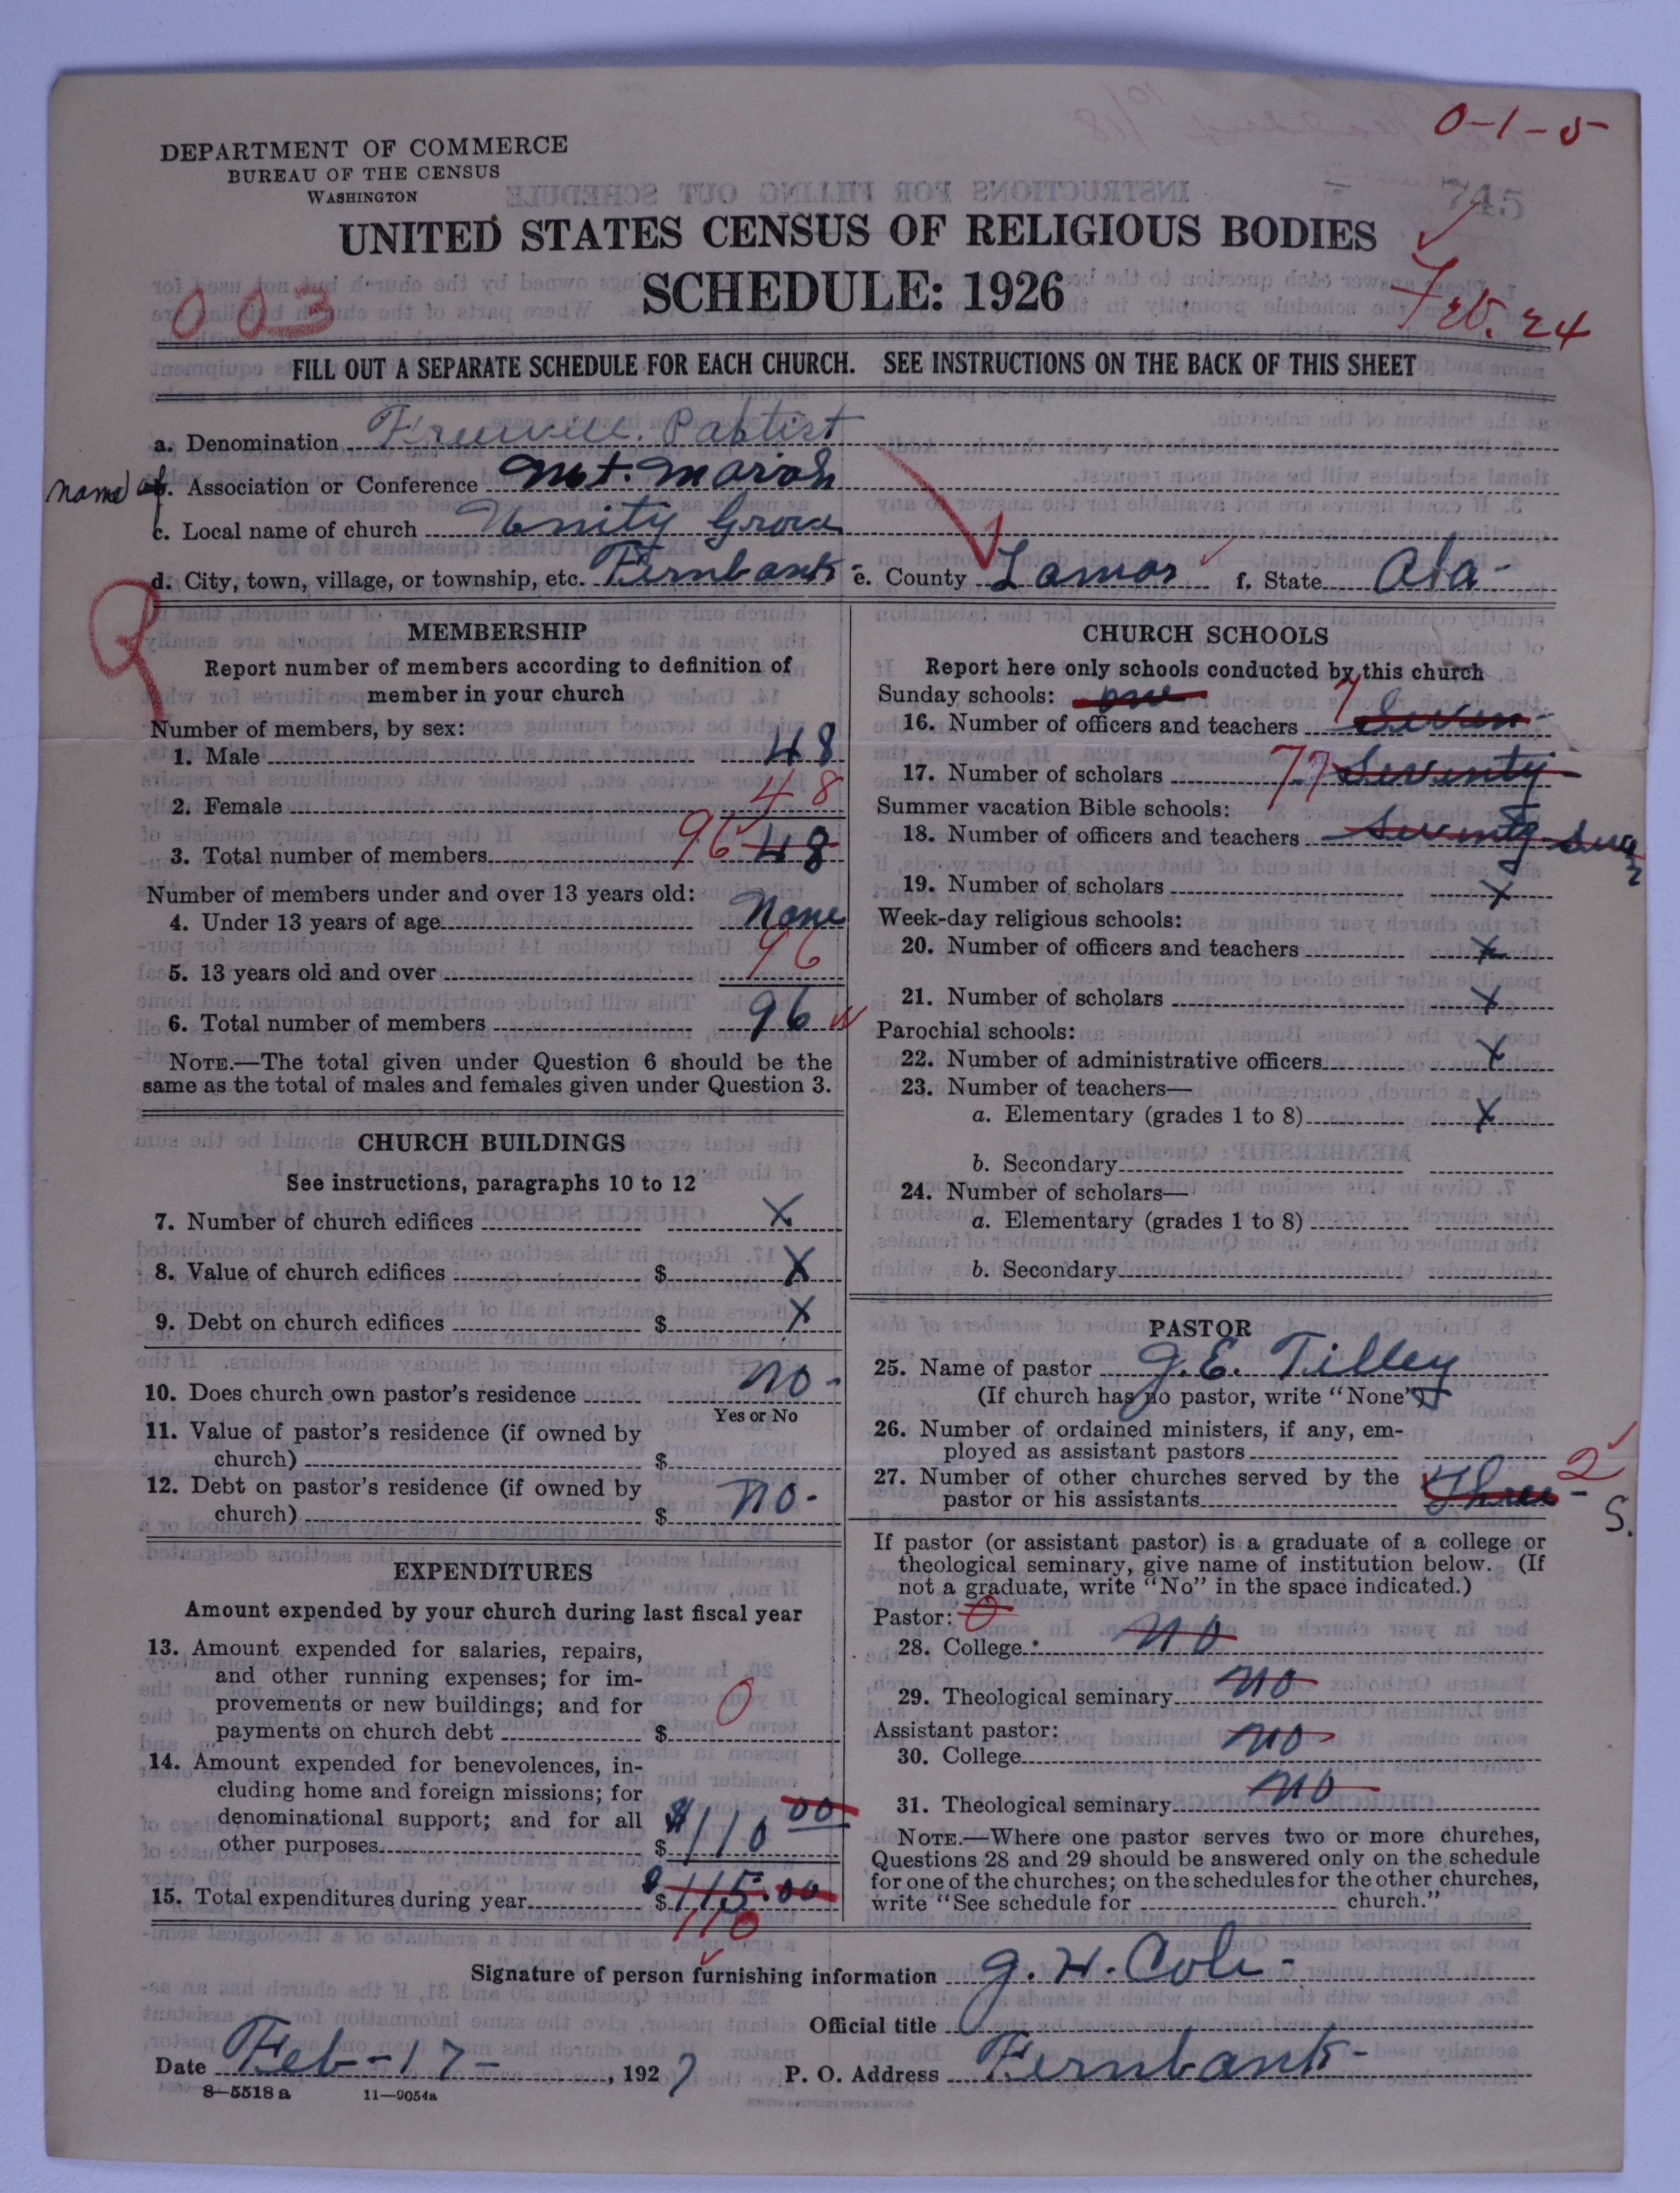 0-1-5
745
DEPARTMENT OF COMMERCE
BUREAU OF THE CENSUS
WASHINGTON
UNITED STATES CENSUS OF RELIGIOUS BODIES
SCHEDULE: 1926
003
Feb. 24
FILL OUT A SEPARATE SCHEDULE FOR EACH CHURCH. SEE INSTRUCTIONS ON THE BACK OF THIS SHEET
a. Denomination Freewill. Babtist
name of b. Association or Conference Mt. Moriah
c. Local name of church Unity Grove
d. City, town, village, or township, etc. Fernbank- e. County Lamar f. State Ala-
MEMBERSHIP
Report number of members according to definition of
member in your church
Number of members, by sex:
1. Male 48
2. Female 48
3. Total number of members 96 48
Number of members under and over 13 years old:
4. Under 13 years of age None
5. 13 years old and over 96
6. Total number of members 96
NOTE.—The total given under Question 6 should be the
same as the total of males and females given under Question 3.
CHURCH BUILDINGS
See instructions, paragraphs 10 to 12
7. Number of church edifices X
8. Value of church edifices $ X
9. Debt on church edifices $ X
10. Does church own pastor's residence no-
Yes or No
11. Value of pastor's residence (if owned by
church) $
12. Debt on pastor's residence (if owned by
church) $ no-
EXPENDITURES
Amount expended by your church during last fiscal year
13. Amount expended for salaries, repairs,
and other running expenses; for im-
provements or new buildings; and for
payments on church debt $ 0
14. Amount expended for benevolences, in-
cluding home and foreign missions; for
denominational support; and for all
other purposes $ $110 00
15. Total expenditures during year $ 115.00
110
CHURCH SCHOOLS
Report here only schools conducted by this church
Sunday schools: one
16. Number of officers and teachers 7 Seven-
17. Number of scholars 77 Seventy
Summer vacation Bible schools:
18. Number of officers and teachers Seventy
19. Number of scholars X
Week-day religious schools:
20. Number of officers and teachers X
21. Number of scholars X
Parochial schools:
22. Number of administrative officers X
23. Number of teachers—
a. Elementary (grades 1 to 8) X
b. Secondary
24. Number of scholars—
a. Elementary (grades 1 to 8)
b. Secondary
PASTOR
25. Name of pastor J.E. Tilley
(If church has no pastor, write "None")
26. Number of ordained ministers, if any, em-
ployed as assistant pastors
27. Number of other churches served by the
pastor or his assistants Three- 2
S.
If pastor (or assistant pastor) is a graduate of a college or
theological seminary, give name of institution below. (If
not a graduate, write "No" in the space indicated.)
Pastor: 0
28. College no
29. Theological seminary no
Assistant pastor:
30. College no
31. Theological seminary no
NOTE.—Where one pastor serves two or more churches,
Questions 28 and 29 should be answered only on the schedule
for one of the churches; on the schedules for the other churches,
write "See schedule for church."
Signature of person furnishing information J. H. Cole-
Official title
Date Feb-17-, 1927 P. O. Address Fernbank-
8-5518 a 11-9054a